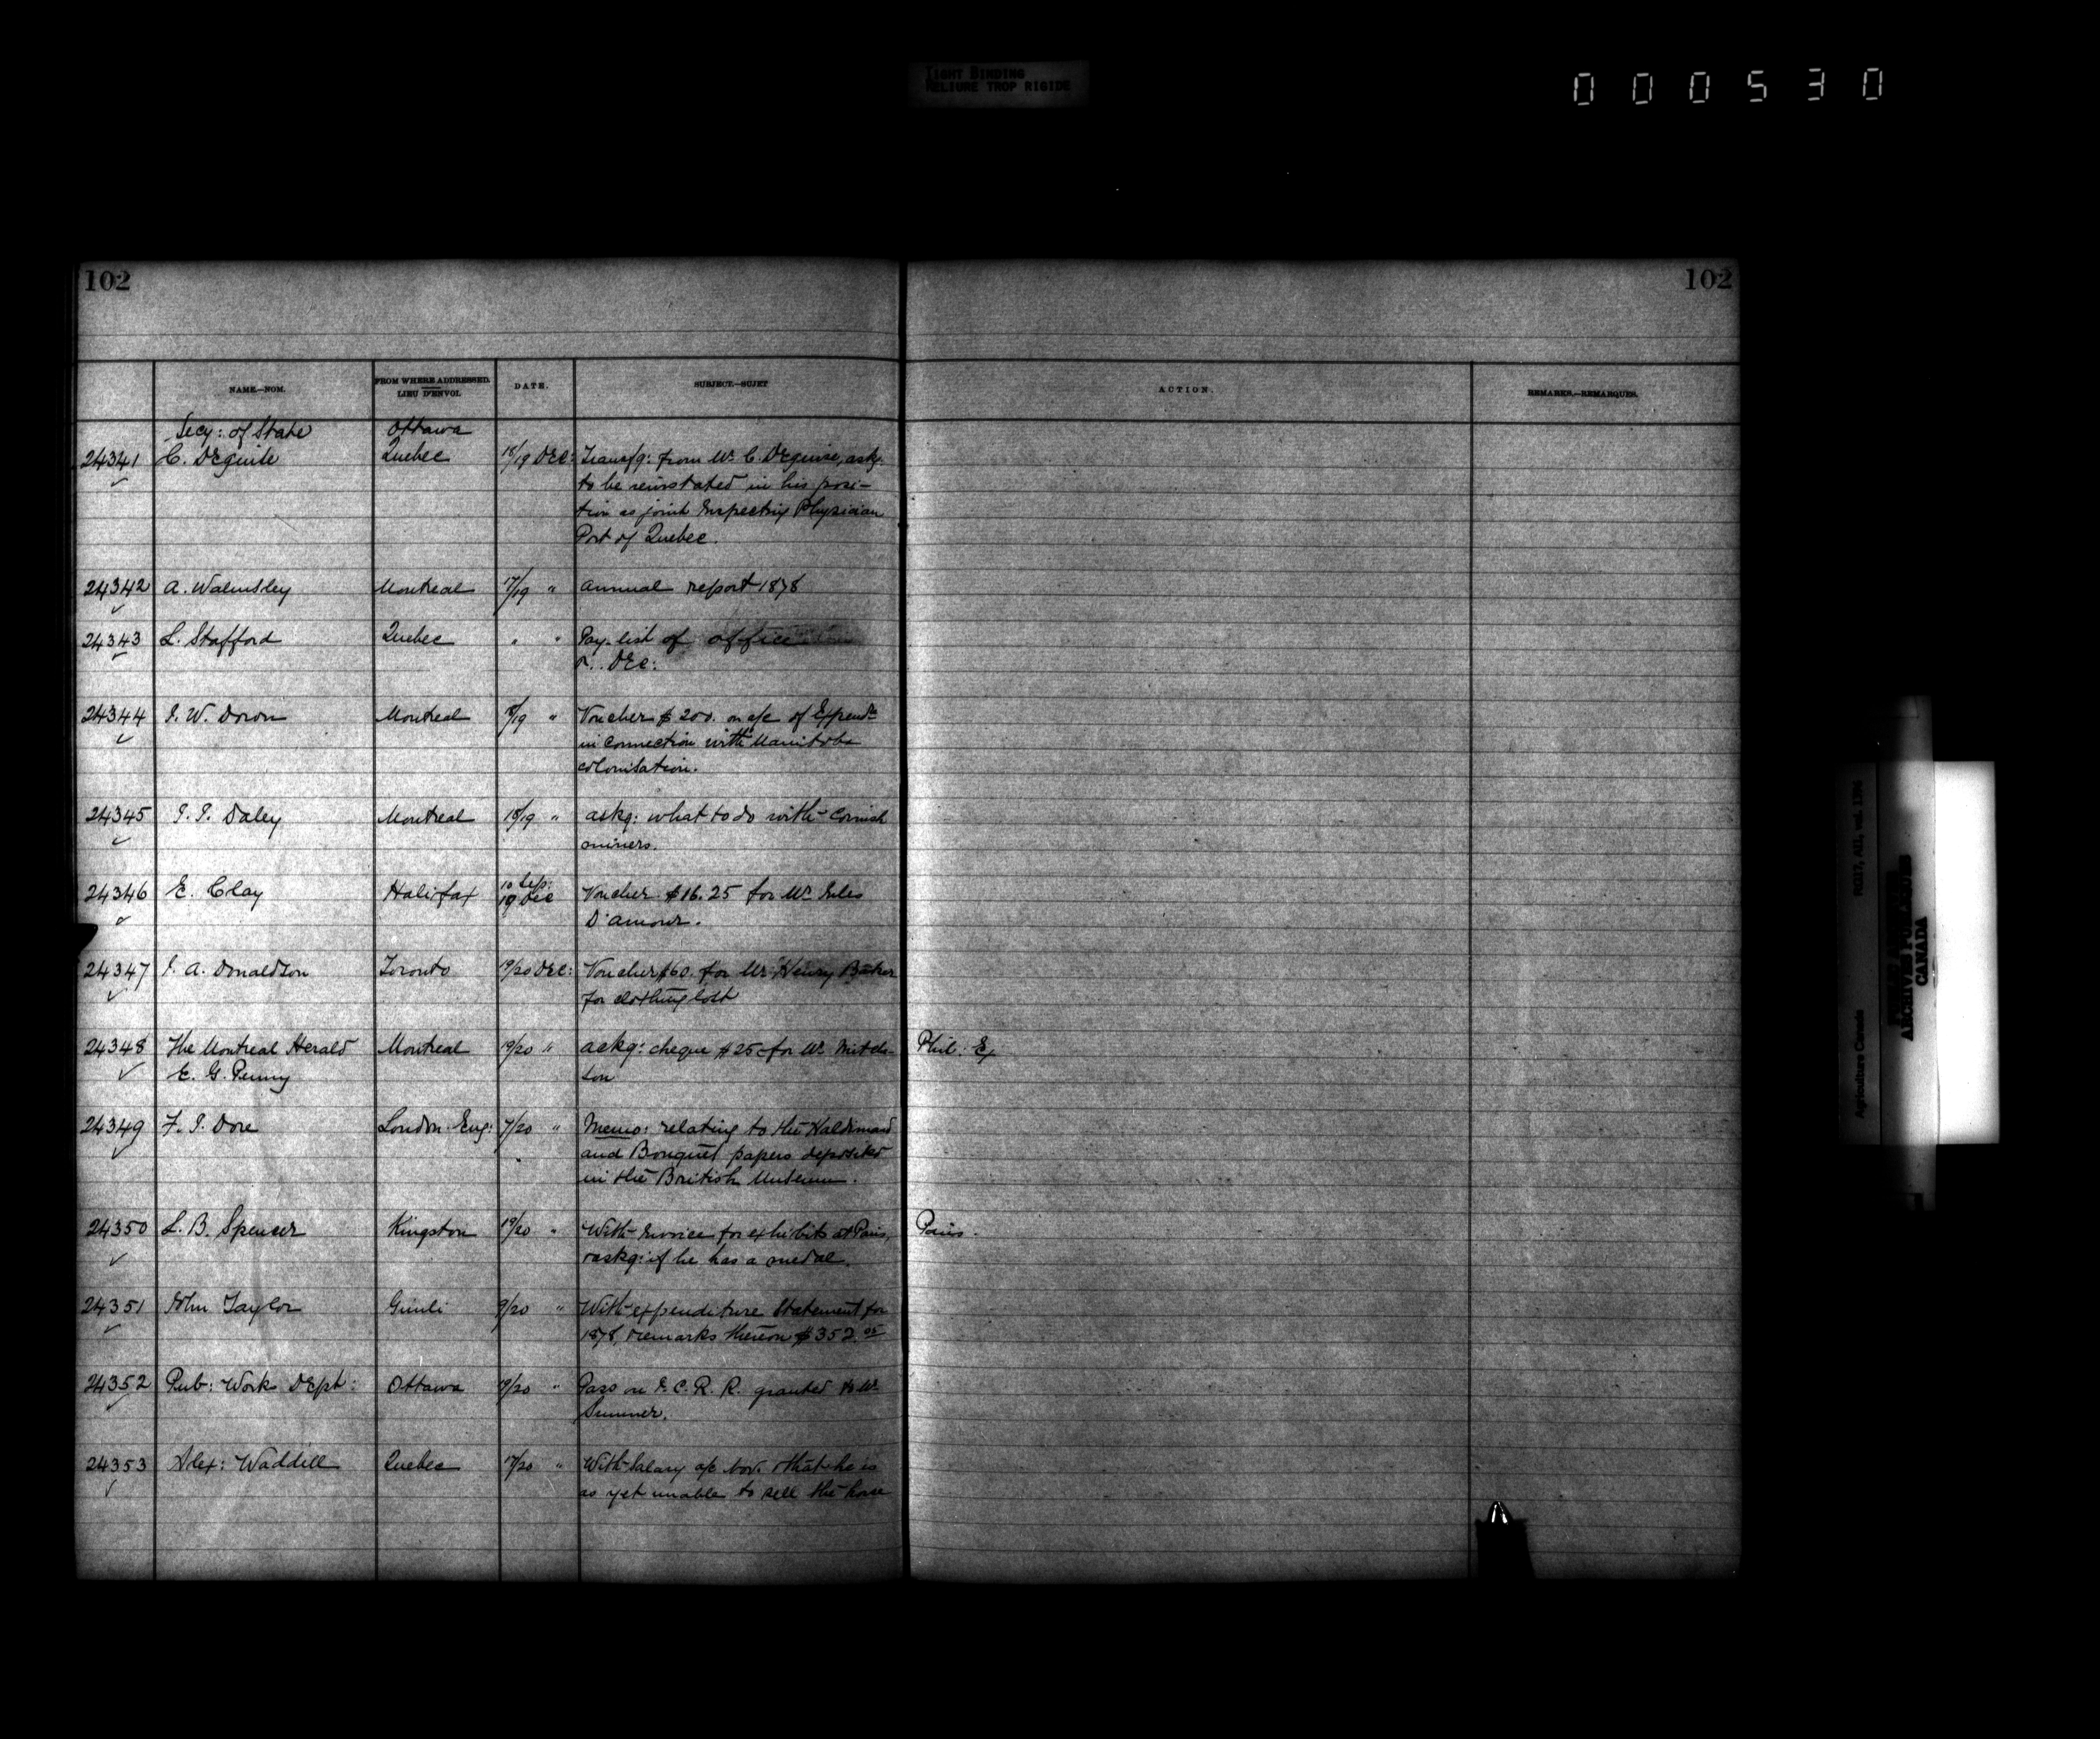 TIGHT BINDING
RELIURE TROP RIGIDE
000530
102
102
NAME.—NOM.
FROM WHERE ADDRESSED.
LIEU D'ENVOI.
DATE.
SUBJECT.—SUJET
ACTION.
REMARKS.—REMARQUES.
Secy: of State Ottawa
24341 C. Deguise Quebec 18/19 Dec: Transfg: from Mr. C. Deguise, askg.
to be reinstated in his posi-
tion as joint Inspecting Physician
Port of Quebec.
24342 A. Walmsley Montreal 17/19 " Annual report 1878
24343 L. Stafford Quebec " " Pay-list of office
Dec:
24344 J. W. Doron Montreal 18/19 " Voucher $200. on a/c of Expendre
in connection with Manitoba
colonisation.
24345 J. J. Daley Montreal 18/19 " askg: what to do with Cornish
miners.
24346 E. Clay Halifax 10 Sep: 19 Dec Voucher $16.25 for Mr.
D'amour.
24347 J. A. Donaldson Toronto 19/20 Dec: Voucher $60. for Mr. Henry Baker
for clothing lost
24348 The Montreal Herald Montreal 19/20 " askg: cheque $25 for Mr. Phil: Ex
E. G. Penny
24349 F. J. Dore London Eng: 7/20 " Memo: relating to the Haldimand
and Bouquet papers deposited
in the British Museum.
24350 L. B. Spencer Kingston 19/20 " With Invoice for exhibits at Paris, Paris.
& askg: if he has a medal.
24351 John Taylor Gimli 9/20 " With expenditure Statement for
1878, & remarks thereon $352.
24352 Pub: Works Dept: Ottawa 19/20 " Pass on I. C. R. R. granted to Mr.
Sumner.
24353 Alex: Waddell Quebec /20 " With Salary a/c Nov. & that he is
as yet unable to sell the horse
Agriculture Canada RG17, AII, vol. 1396
PUBLIC ARCHIVES
ARCHIVES PUBLIQUES
CANADA